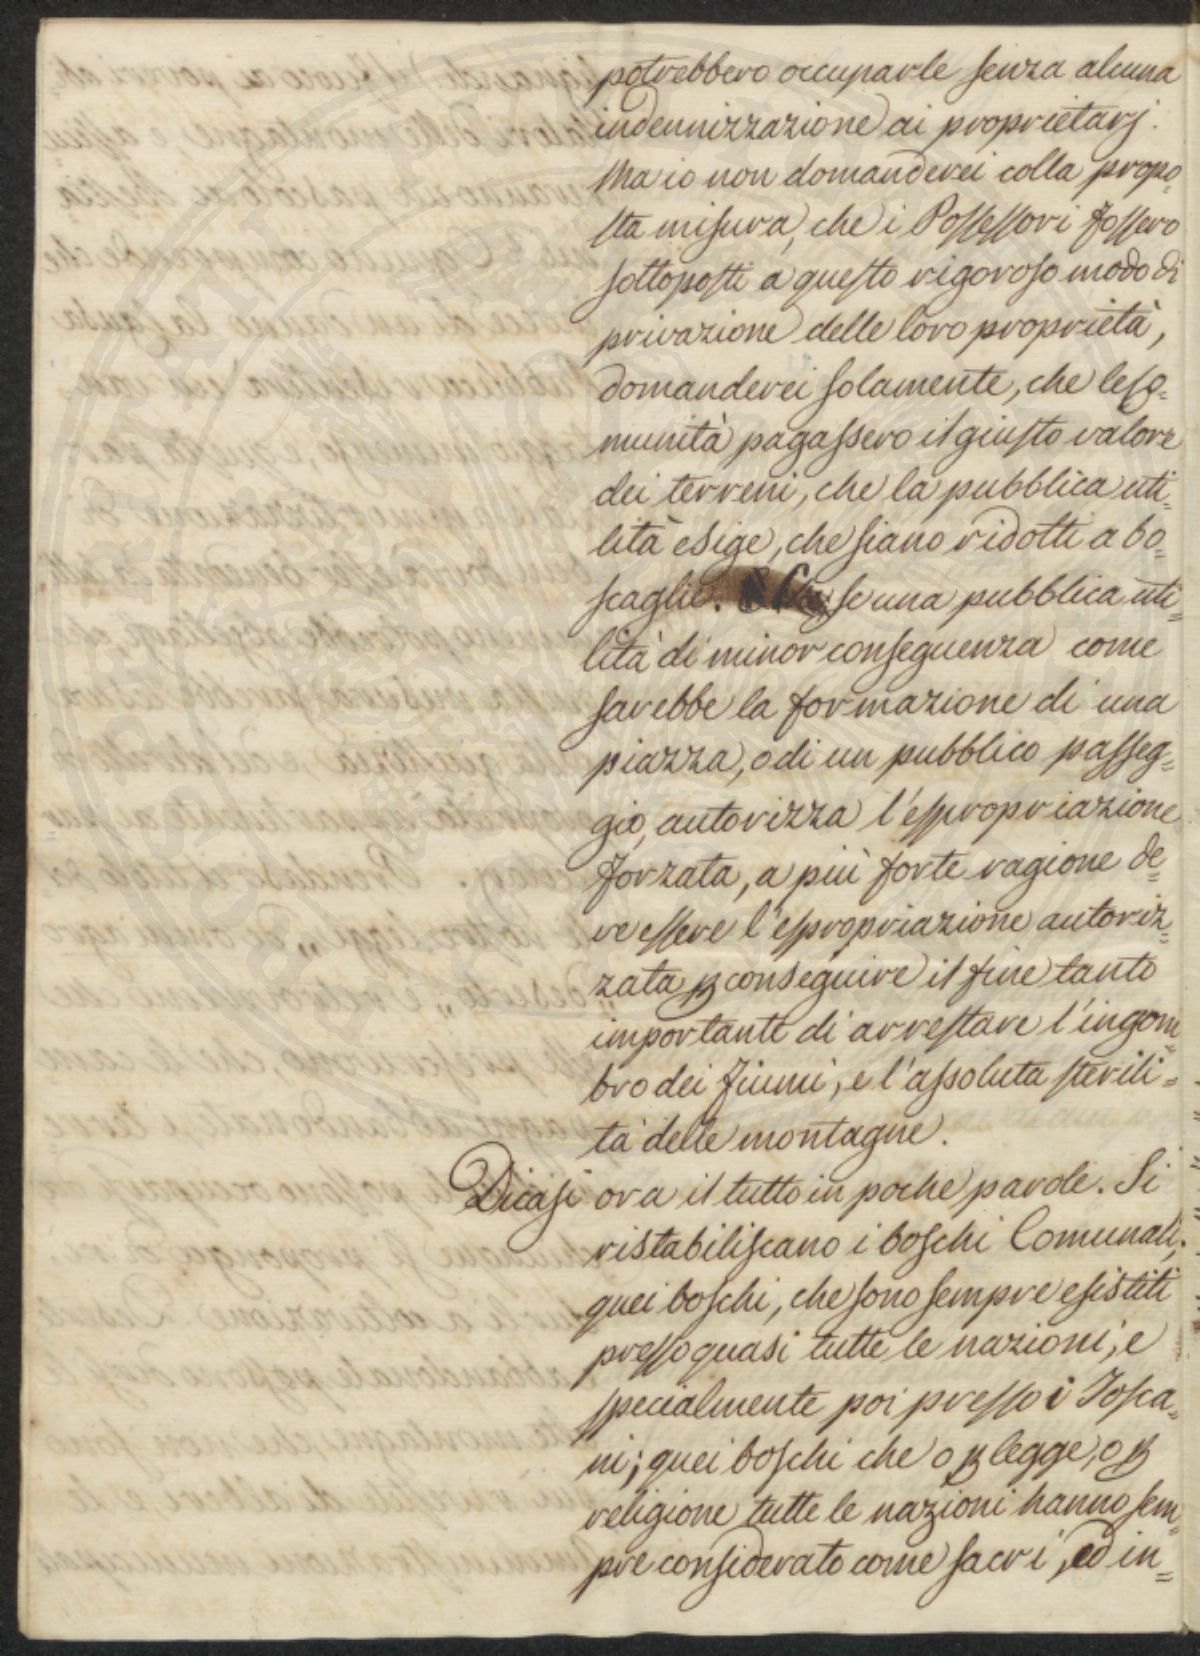 potrebbero occuparle senza alcuna
indennizzazione ai proprietarj.
Ma io non domanderei colla propo=
sta misura, che i Possessori fossero
sottoposti a questo rigoroso modo di
privazione delle loro proprietà,
domanderei solamente, che le Co=
munità pagassero il giusto valore
dei terreni, che la pubblica uti=
lità esige, che siano ridotti a bo=
scaglie. se una pubblica uti=
lità di minor conseguenza come
sarebbe la formazione di una
piazza, o di un pubblico passeg=
gio, autorizza l'espropriazione
forzata, a più forte ragione de=
ve essere l'espropriazione autoriz=
zata ꝑ conseguire il fine tanto
importante di arrestare l'ingom=
bro dei fiumi, e l'assoluta sterili=
tà delle montagne.
Dicasi ora il tutto in poche parole. Si
ristabiliscano i boschi Comunali;
quei boschi, che sono sempre esistiti
presso quasi tutte le nazioni, e
specialmente poi presso i Tosca=
ni; quei boschi che o ꝑ legge, o ꝑ
religione tutte le nazioni hanno sem=
pre considerato come sacri, ed in=